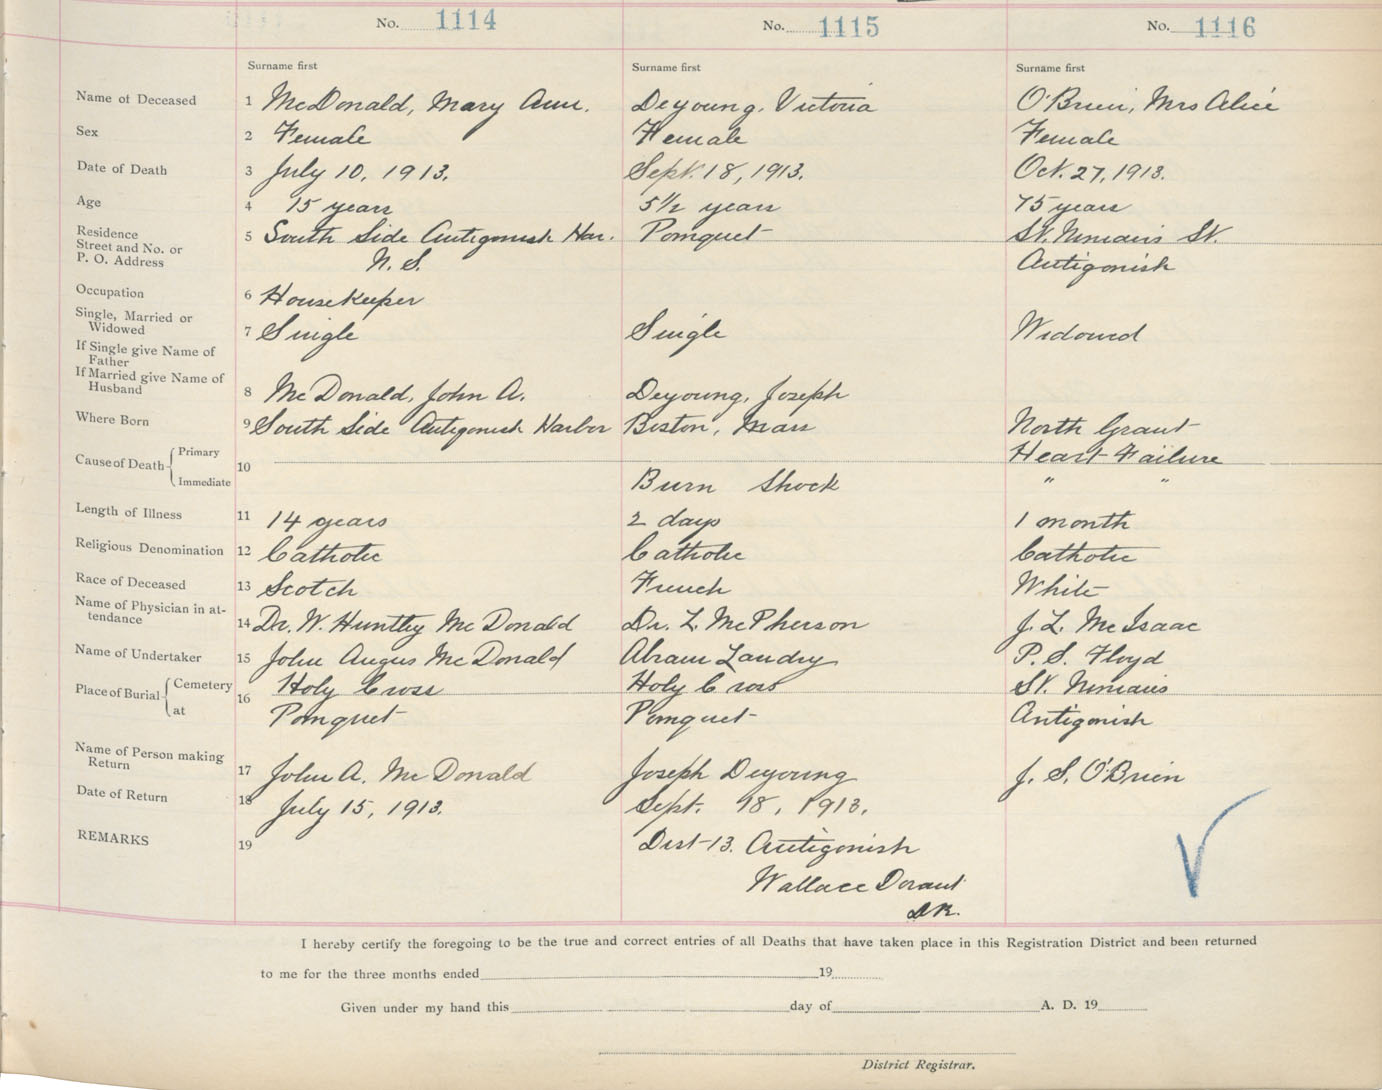 No. 1114 No. 1115 No. 1116
Surname first Surname first Surname first
Name of Deceased 1 McDonald, Mary Ann. Deyoung, Victoria O'Brien, Mrs Alice
Sex 2 Female Female Female
Date of Death 3 July 10, 1913. Sept. 18, 1913. Oct. 27, 1913.
Age 4 15 years 5½ years 75 years
Residence
Street and No. or
P. O. Address
5 South Side Antigonish Har. Pomquet St. Ninians St.
N. S. Antigonish
Occupation 6 Housekeeper
Single, Married or
Widowed
7 Single Single Widowed
If Single give Name of
Father
If Married give Name of
Husband
8 McDonald, John A. Deyoung, Joseph
Where Born 9 South Side Antigonish Harbor Boston, Mass North Grant
Cause of Death { Primary 10 Heart Failure
Immediate Burn Shock " "
Length of Illness 11 14 years 2 days 1 month
Religious Denomination 12 Catholic Catholic Catholic
Race of Deceased 13 Scotch French White
Name of Physician in at-
tendance
14 Dr. W. Huntley McDonald Dr. L. McPherson J. L. McIsaac
Name of Undertaker 15 John Angus McDonald Abram Landry P. S. Floyd
Place of Burial { Cemetery 16 Holy Cross Holy Cross St. Ninians
at Pomquet Pomquet Antigonish
Name of Person making
Return
17 John A. McDonald Joseph Deyoung J. S. O'Brien
Date of Return 18 July 15, 1913. Sept. 18, 1913.
REMARKS 19 Dist-13. Antigonish
Wallace
D.R.
I hereby certify the foregoing to be the true and correct entries of all Deaths that have taken place in this Registration District and been returned
to me for the three months ended 19
Given under my hand this day of A. D. 19
District Registrar.